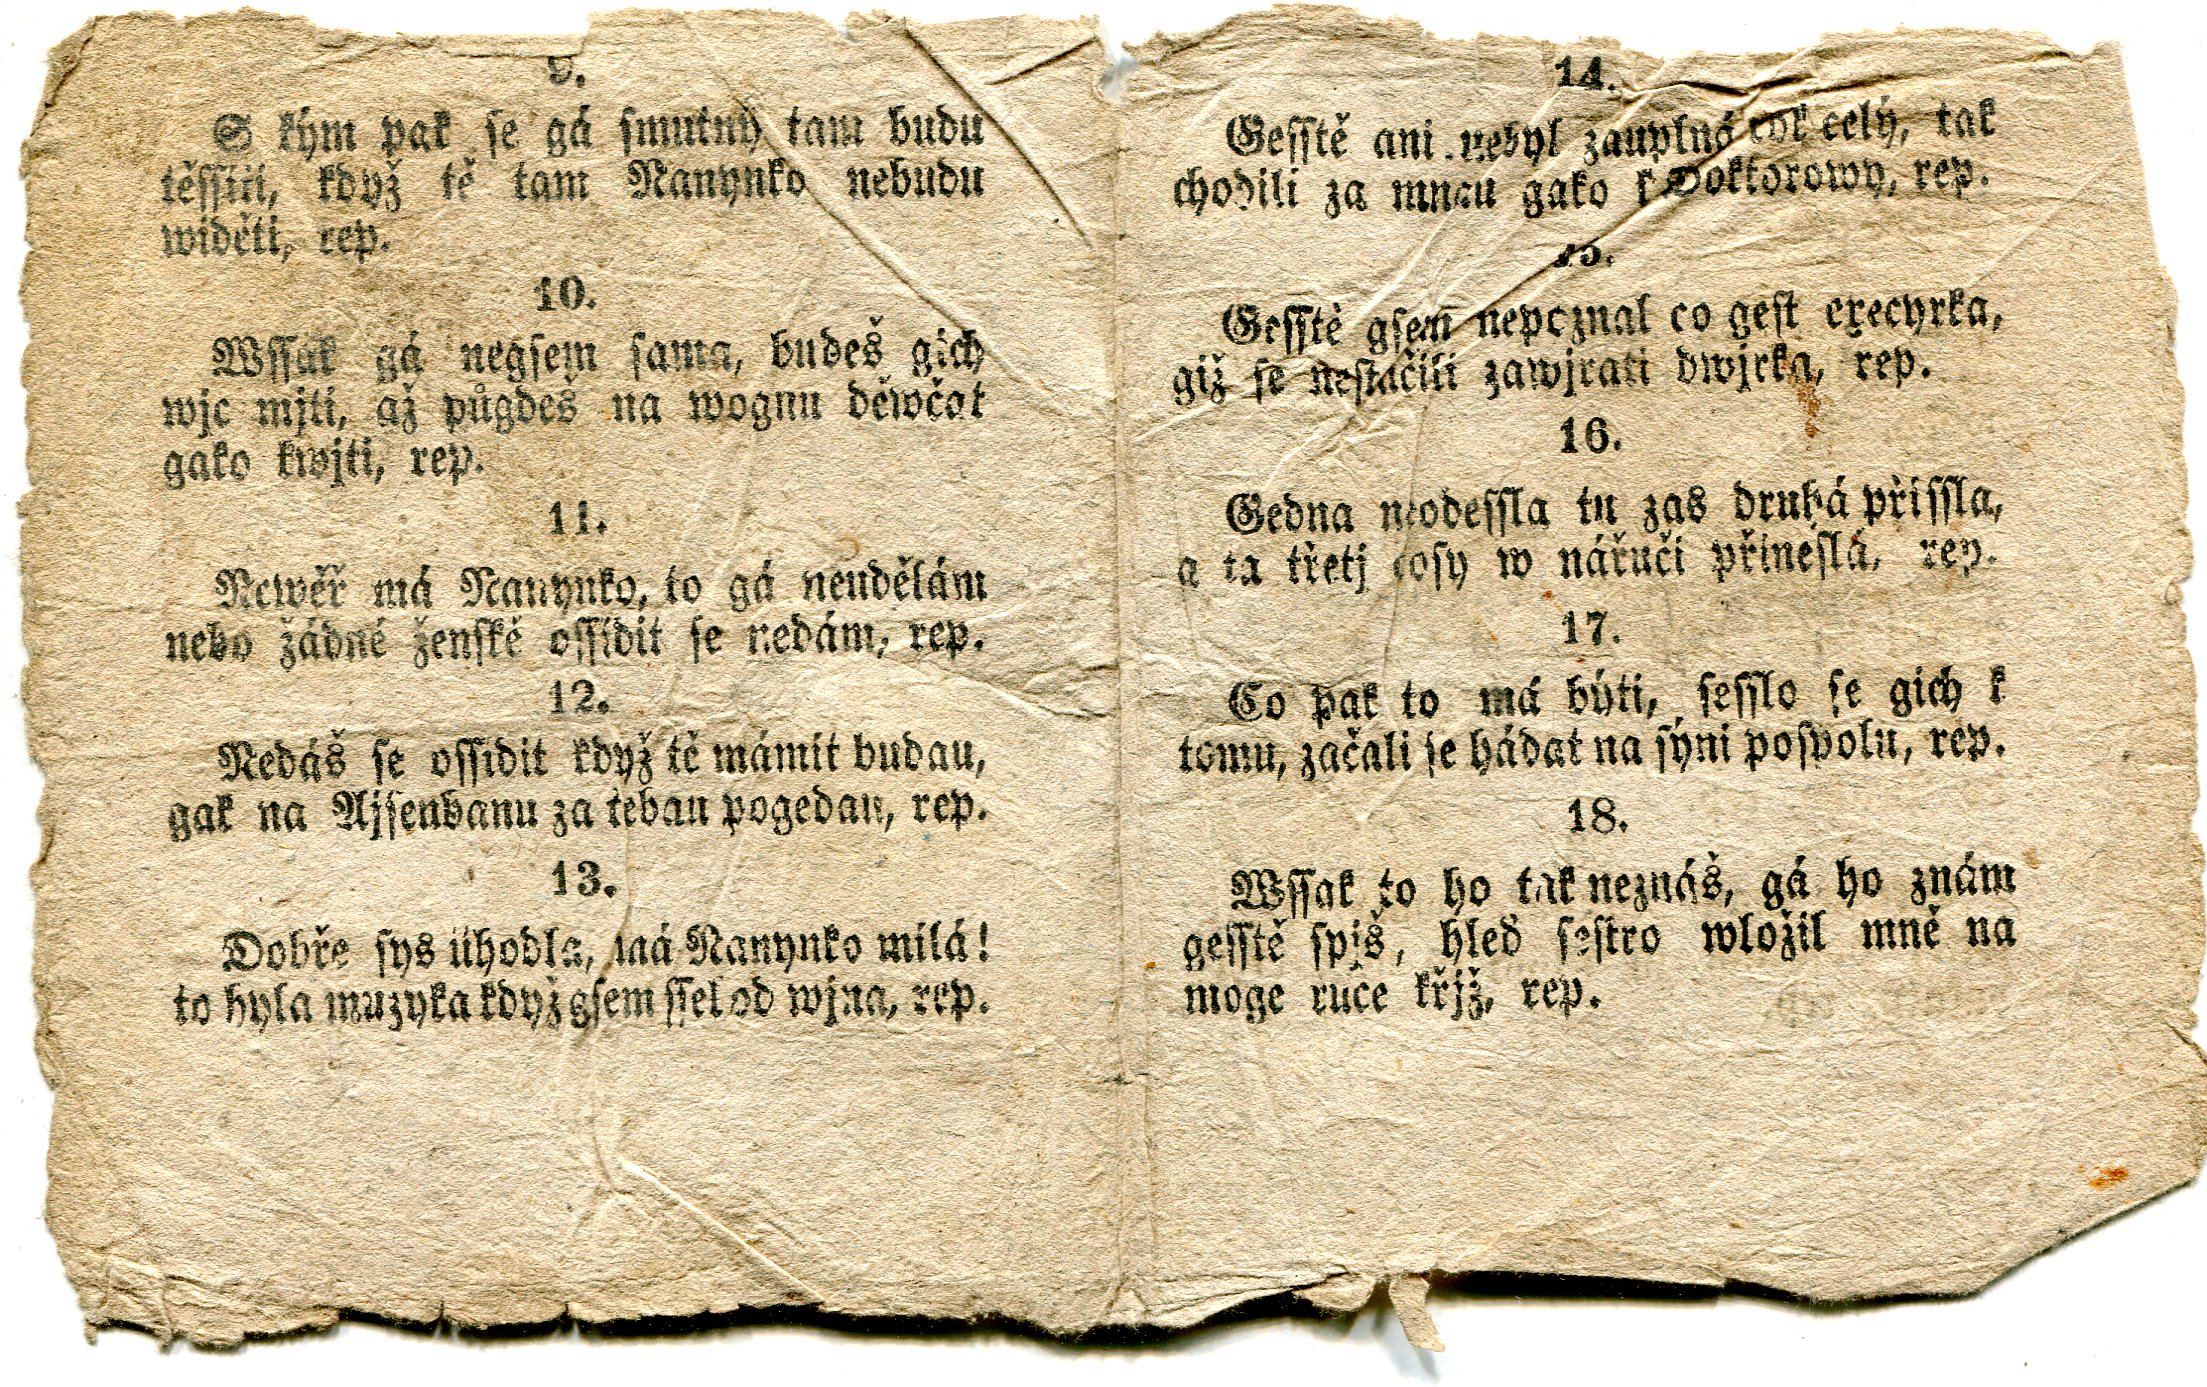 9.
S kým pak se gá smutný tam budu
těssiti, když tě tam Nanynko nebudu
widěti, rep.
10.
Wssak gá negsem sama, budeš gich
wjc mjti, až půgdeš na wognu děwčat
gako kwjti, rep.
11.
Newěř má Nanynko, to gá neudělám
nebo žádné ženské ossidit se nedám, rep.
12.
Nedáš se ossidit když tě mámit budau,
gak na Ajsenbanu za tebau pogedau, rep.
13.
Dobře sys uhodla, má Nanynko milá!
to byla muzyka když gsem ssel od wjna, rep.
14.
Gesstě ani nebyl zauplná rok celý, tak
chodili za mnau gako k Doktorowy, rep.
15.
Gesstě gsem nepoznal co gest execyrka,
giž se nestačili zawjrati dwjrka, rep.
16.
Gedna neodessla tu zas druhá přissla,
a ta třetj cosy w náručj přinesla, rep.
17.
Co pak to má býti, sesslo se gich k
tomu, začali se hádat na sýni pospolu, rep.
18.
Wssak to ho tak neznáš, gá ho znám
gesstě spjš, hleď sestro wložil mně na
moge ruce křjž, rep.